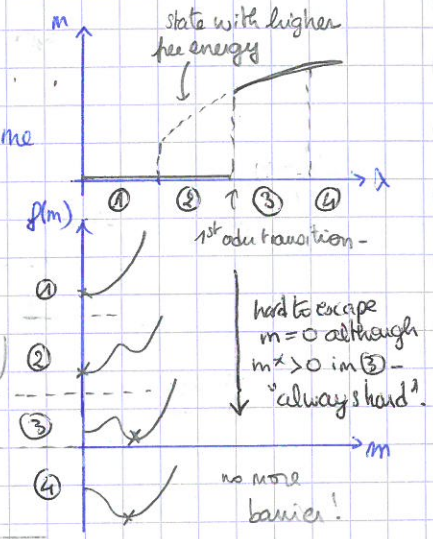 m
state with higher
free energy
me
λ
① ② ↑ ③ ④
f(m)
1st order transition -
①
hard to escape
m=0 although
m*>0 in ③ -
"always hard".
②
③
m
④
no more
barrier!